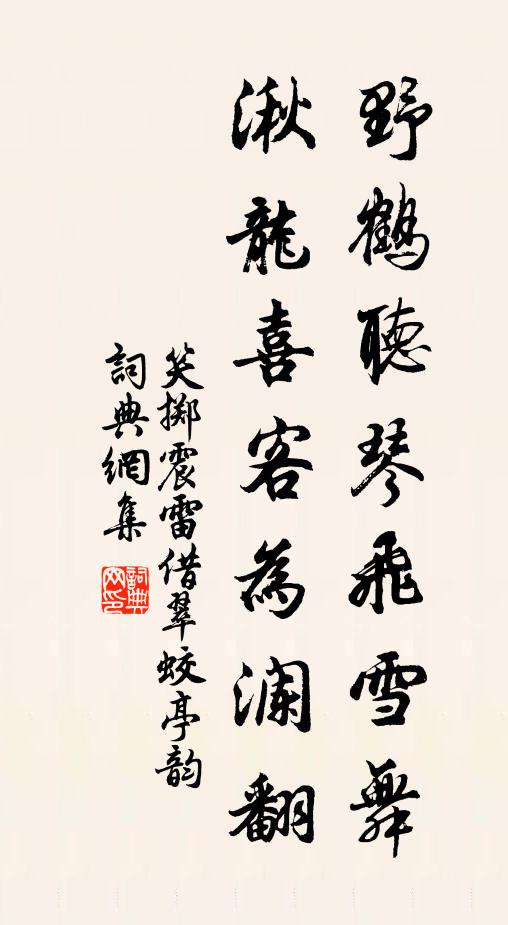 野鶴聽琴飛雪舞
湫龍喜客為瀾翻
笑擲震雷借翠蛟亭韵
詞典網集
詞典
网印